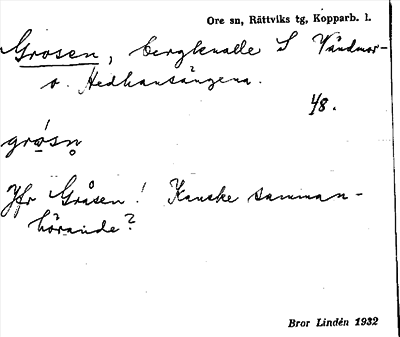 Ore sn, Rättviks tg, Kopparb. l.
Grosen, bergknalle S
o. Hedhansängena.
48.
grosn
Jfr Gråsen! Kanske samman-
hörande?
Bror Lindén 1932